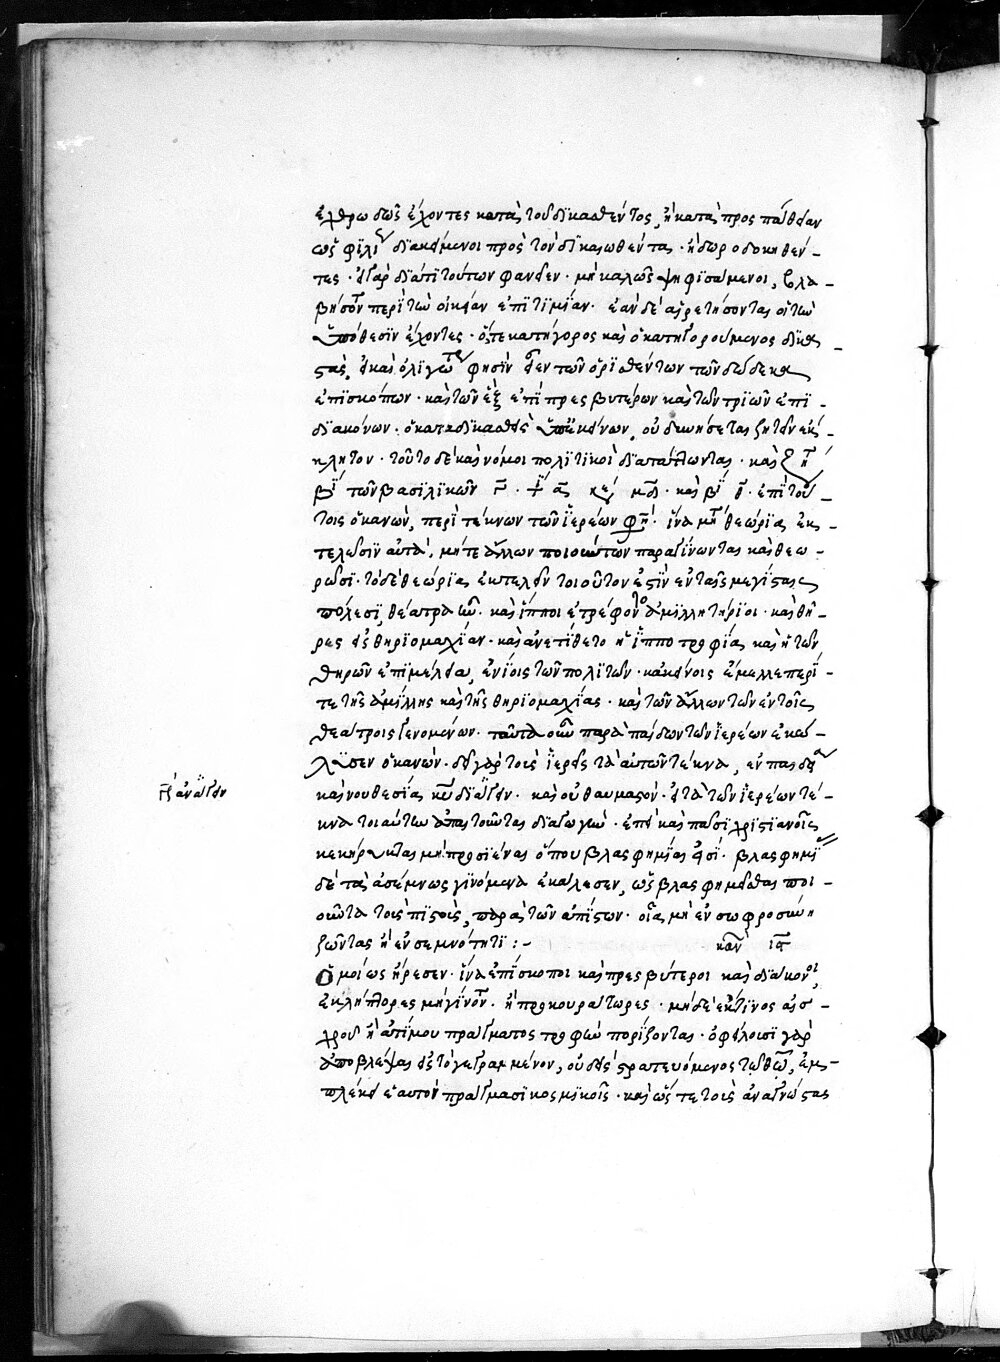 ἐχθρωδῶς ἔχοντες κατὰ τοῦ δικασθέντος, ἢ κατὰ προσπάθειαν
ὡς φίλοι διακείμενοι πρὸς τὸν δικαιωθέντα · ἢ δωροδοκηθέν-
τες · εἰ γὰρ διά τι τούτων φανεῖεν · μὴ καλῶς ψηφισάμενοι, βλα-
βήσονται περὶ τὴν οἰκείαν ἐπιτιμίαν · ἐὰν δὲ αἱρετήσονται οἱ τὴν
ὑπόθεσιν ἔχοντες · ὅ, τε κατήγορος καὶ ὁ κατηγορούμενος δικα-
στὰς, εἰ καὶ ὀλιγώτεροι φησὶν εἶεν τῶν ὁρισθέντων τῶν δώδεκα
ἐπισκόπων · καὶ τῶν ἓξ ἐπὶ πρεσβυτέρων καὶ τῶν τριῶν ἐπὶ
διακόνων · ὁ καταδικασθεὶς ὑπ' ἐκείνων, οὐ δυνήσεται ζητεῖν ἔκ-
κλητον · τοῦτο δὲ καὶ νόμοι πολιτικοὶ διαπάττονται · καὶ
τῶν βασιλικῶν · καὶ · ἐπὶ τού-
τοις ὁ κανὼν, περὶ τέκνων τῶν ἱερέων φησὶ · ἵνα μήτε θεωρίας ἐκ-
τελῶσιν αὐτά, μήτε ἄλλων ποιούντων παραγίνωνται καὶ θεω-
ρῶσι · τὸ δὲ θεωρίας ἐκτελεῖν τοιοῦτον ἐστὶν ἐν ταῖς μεγίσταις
πόλεσι, θέατρα ἦν · καὶ ἵπποι ἐτρέφοντο ἁμιλλητήριοι · καὶ θῆ-
ρες εἰς θηριομαχίαν · καὶ ἀνετίθετο ἡ ἱπποτροφία καὶ ἡ τῶν
θηρῶν ἐπιμέλεια, ἐνίοις τῶν πολιτῶν · κἀκείνοις ἔμελλε περί
τε τῆς ἁμίλλης καὶ τῆς θηριομαχίας · καὶ τῶν ἄλλων τῶν ἐν τοῖς
θεάτροις γενομένων · ταῦτα οὖν παρὰ παίδων τῶν ἱερέων ἐκώ-
λυσεν ὁ κανών · δεῖ γὰρ τοὺς ἱερεῖς τὰ αὐτῶν τέκνα, ἐν παιδείᾳ
καὶ νουθεσίᾳ κυρίου διάγειν · καὶ οὐ θαυμαστὸν · εἰ τὰ τῶν ἱερέων τέ-
κνα τοιαύτην ἀπαιτοῦνται διαγωγὴν · ἐπεὶ καὶ πᾶσι χριστιανοῖς
κεκήρυκται μὴ προσιέναι ὅπου βλασφημίας εἰσί · βλασφημί
δὲ τὰ ἀσέμνως γινόμενα ἐκάλεσεν, ὡς βλασφημεῖσθαι ποι-
οῦντα τοὺς πιστοὺς, παρὰ τῶν ἀπίστων · οἷα μὴ ἐν σωφροσύνῃ
ζῶντας ἢ ἐν σεμνότητι :-
κανὼν
Ὁμοίως ἤρεσεν · ἵνα ἐπίσκοποι καὶ πρεσβύτεροι καὶ διάκονοι,
ἐκλήπτορες μὴ γίνονται · ἢ προκουράτωρες · μηδὲ ἔκ τινος αἰσ-
χροῦ ἢ ἀτίμου πράγματος τροφὴν πορίζονται · ὀφείλουσι γὰρ
ἀποβλέψαι εἰς τὸ γεγραμμένον, οὐδεὶς στρατευόμενος τῷ θεῷ, ἐμ-
πλέκει ἑαυτὸν πράγμασι κοσμικοῖς · καὶ ὥστε τοὺς ἀναγνώστας